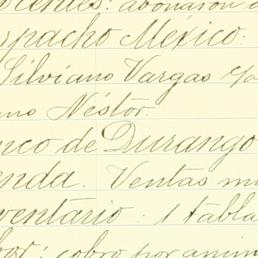 abonaron
spacho México.
Silviano Vargas c/a
Néstor.
nco de Durango
enda. Ventas m
ventario: 1 tabla
cobro por anim